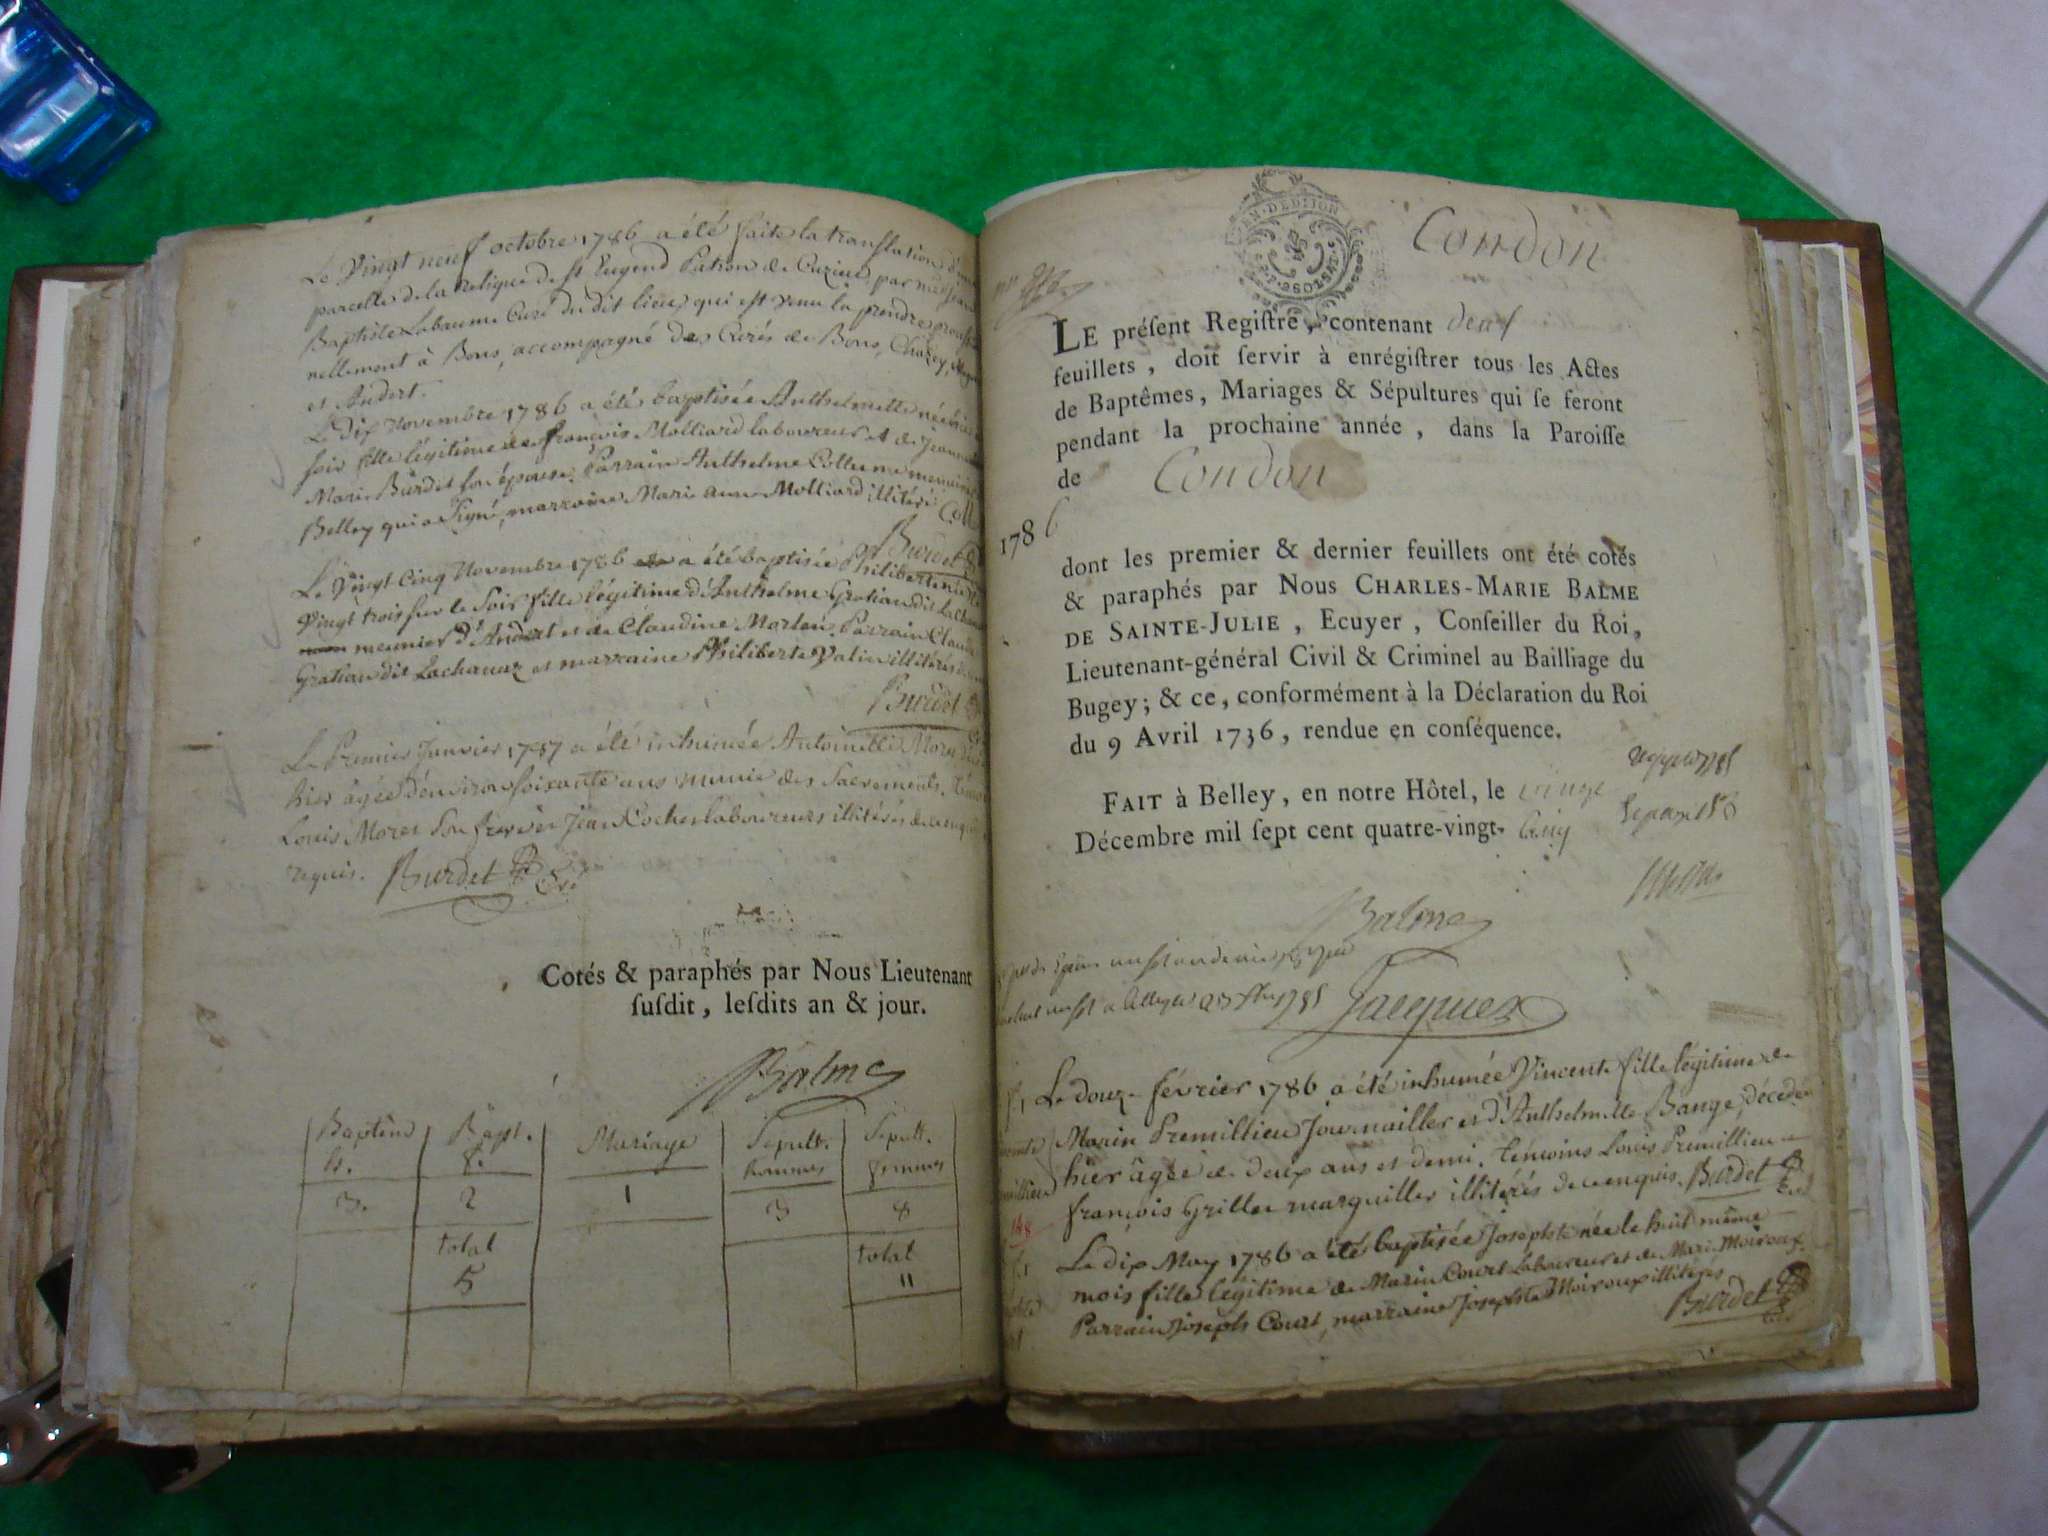 Le Vingt neuf octobre 1786 a été faite la translation d'une
parcelle de la Relique de St Eugend Patron de Cuzieu, par
Baptiste Labaume Curé du dit lieu, qui est venu la prendre
nellement à Bons, accompagné des Curés de Bons, Chazey,
et Andert.
Le Dix Novembre 1786 a été baptisée Anthelmette née hier
soir fille légitime de françois Molliard laboureur et de Jeanne
Marie Burdet son épouse. Parrain Anthelme Collume menuisier
Belley qui a Signé, marraine Marie anne Molliard illitéré
Burdet
Le Vingt Cinq Novembre 1786 a été baptisée Philiberte née le
Vingt trois sur le Soir fille légitime d'Anthelme Gratian dit Lachanaz
meunier d'Andert et de Claudine Morlen. Parrain Claude
Gratian dit Lachanaz et marraine Philiberte Valin illitérés
Burdet
Le Premier Janvier 1787 a été inhumée Antoinette Moret
hier âgée d'environ soixante ans munie des Sacrements.
Louis Moret son frere et Jean Cocher laboureurs illitérés de ce enquis
requis. Burdet
Cotés & paraphés par Nous Lieutenant
suſdit, leſdits an & jour.
Balme
Baptême Bapt. Mariage Sepult. Sepult.
h. f. hommes femmes
3. 2 1 3 8
total total
5 11
EN DEDIJON
Condon
LE préſent Regiſtre, contenant deux
feuillets, doit ſervir à enrégiſtrer tous les Actes
de Baptêmes, Mariages & Sépultures qui ſe feront
pendant la prochaine année, dans la Paroiſſe
de Condon
1786
dont les premier & dernier feuillets ont été cotés
& paraphés par Nous CHARLES-MARIE BALME
DE SAINTE-JULIE, Ecuyer, Conſeiller du Roi,
Lieutenant-général Civil & Criminel au Bailliage du
Bugey; & ce, conformément à la Déclaration du Roi
du 9 Avril 1736, rendue en conſéquence.
FAIT à Belley, en notre Hôtel, le vingt
Décembre mil ſept cent quatre-vingt- Cinq
Balme
Jacquier
Le douze février 1786 a été inhumée Vincente fille légitime de
Marin Premillieu Journailler et d'Anthelmette Bange, décédée
hier âgée de deux ans et demi. témoins Louis Premillieu
françois Grillet marguiller illitérés de ce enquis. Burdet
Le dix May 1786 a été baptisée Josephte née le huit même
mois fille légitime de Marin Court Laboureur et de Marie Moiroux.
Parrain Joseph Court, marraine Josephte Moiroux illitérés
Burdet